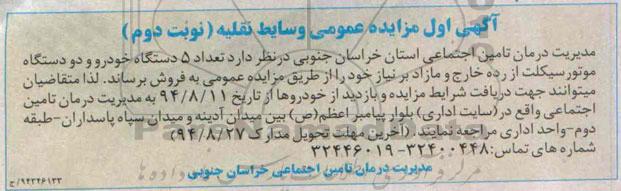 آگهی اول مزایده عمومی وسایط نقلیه (نوبت دوم)
مدیریت درمان تامین اجتماعی استان خراسان جنوبی در نظر دارد تعداد ۵ دستگاه خودرو و دو دستگاه
موتورسیکلت از رده خارج و مازاد بر نیاز خود را از طریق مزایده عمومی به فروش برساند. لذا متقاضیان
میتوانند جهت دریافت شرایط مزایده و بازدید از خودروها از تاریخ ۹۴/۸/۱۱ به مدیریت درمان تامین
اجتماعی واقع در (سایت اداری) بلوار پیامبر اعظم(ص) بین میدان آدینه و میدان سپاه پاسداران-طبقه
دوم-واحد اداری مراجعه نمایند. (آخرین مهلت تحویل مدارک ۹۴/۸/۲۷)
شماره های تماس: ۳۲۴۰۰۴۴۸-۳۲۴۴۶۰۱۹
مدیریت درمان تامین اجتماعی خراسان جنوبی
۹۴۲۴۶۱۳۳/ج